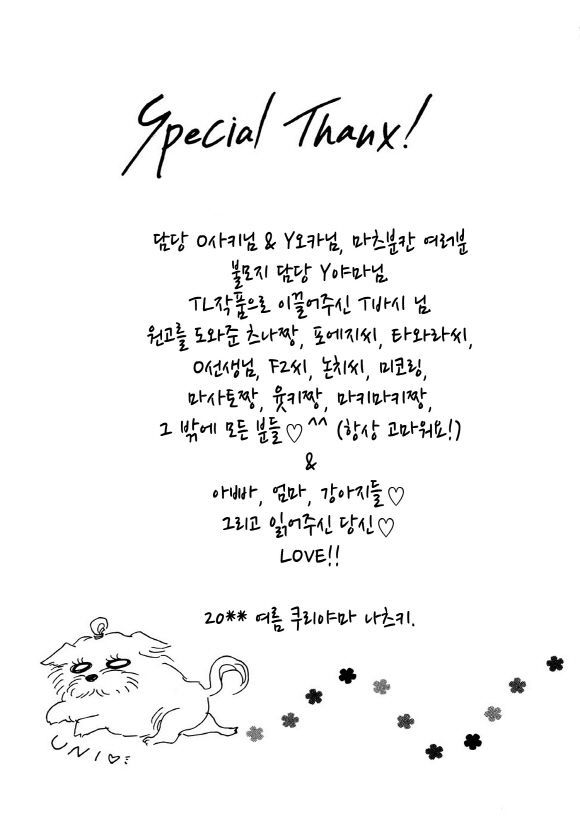 Special Thanx!
담당 O사키님 & Y오카님, 마츠분칸 여러분
불모지 담당 Y야마님
TL작품으로 이끌어주신 T바시 님
원고를 도와준 츠나짱, 포에지씨, 타와라씨,
O선생님, F2씨, 논치씨, 미코링,
마사토짱, 윳키짱, 마키마키짱,
그 밖에 모든 분들♡^^ (항상 고마워요!)
&
아빠, 엄마, 강아지들♡
그리고 읽어주신 당신♡
LOVE!!
20** 여름 쿠리야마 나츠키.
UNI♡